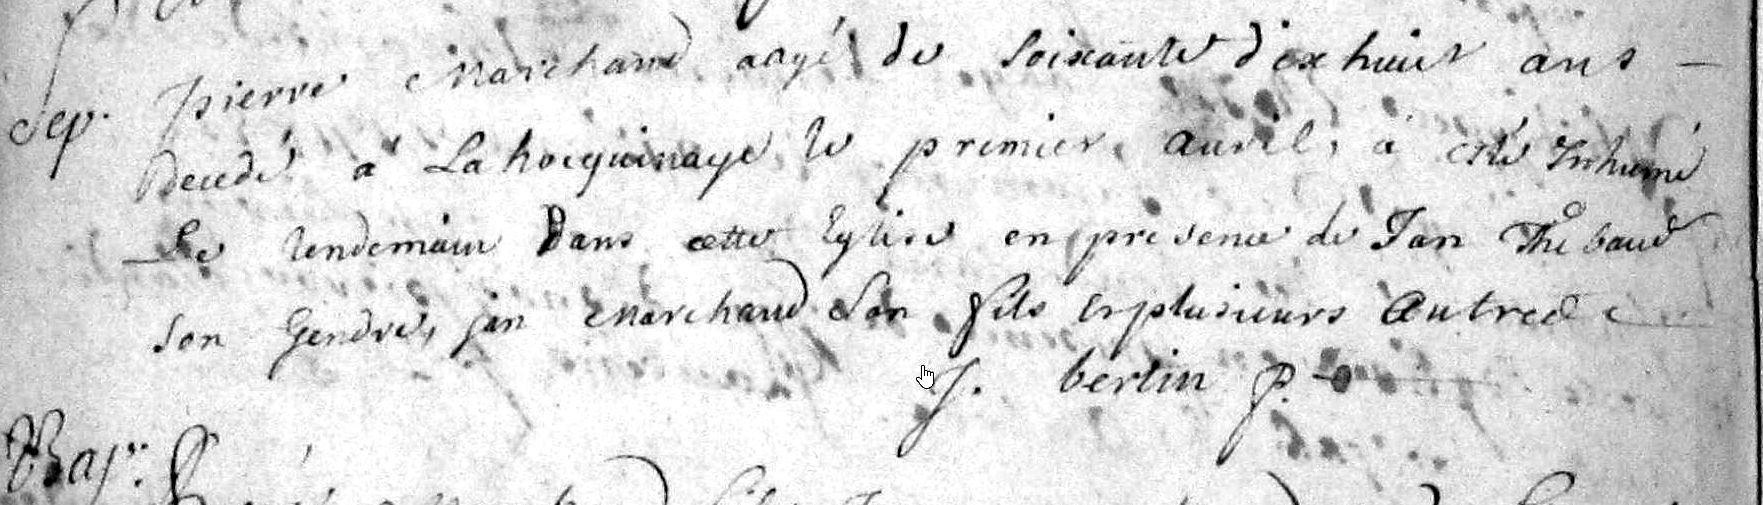 Sep. pierre Marchand aagé de soixante dix huict ans -
Decedé a La hocquinaye le premier auril, a esté Inhumé
Le lendemain Dans cette Eglise en presence de Jan Thebaud
son Gendre, jan Marchand Son fils et plusieurs Autres
J. bertin p.
Bap.